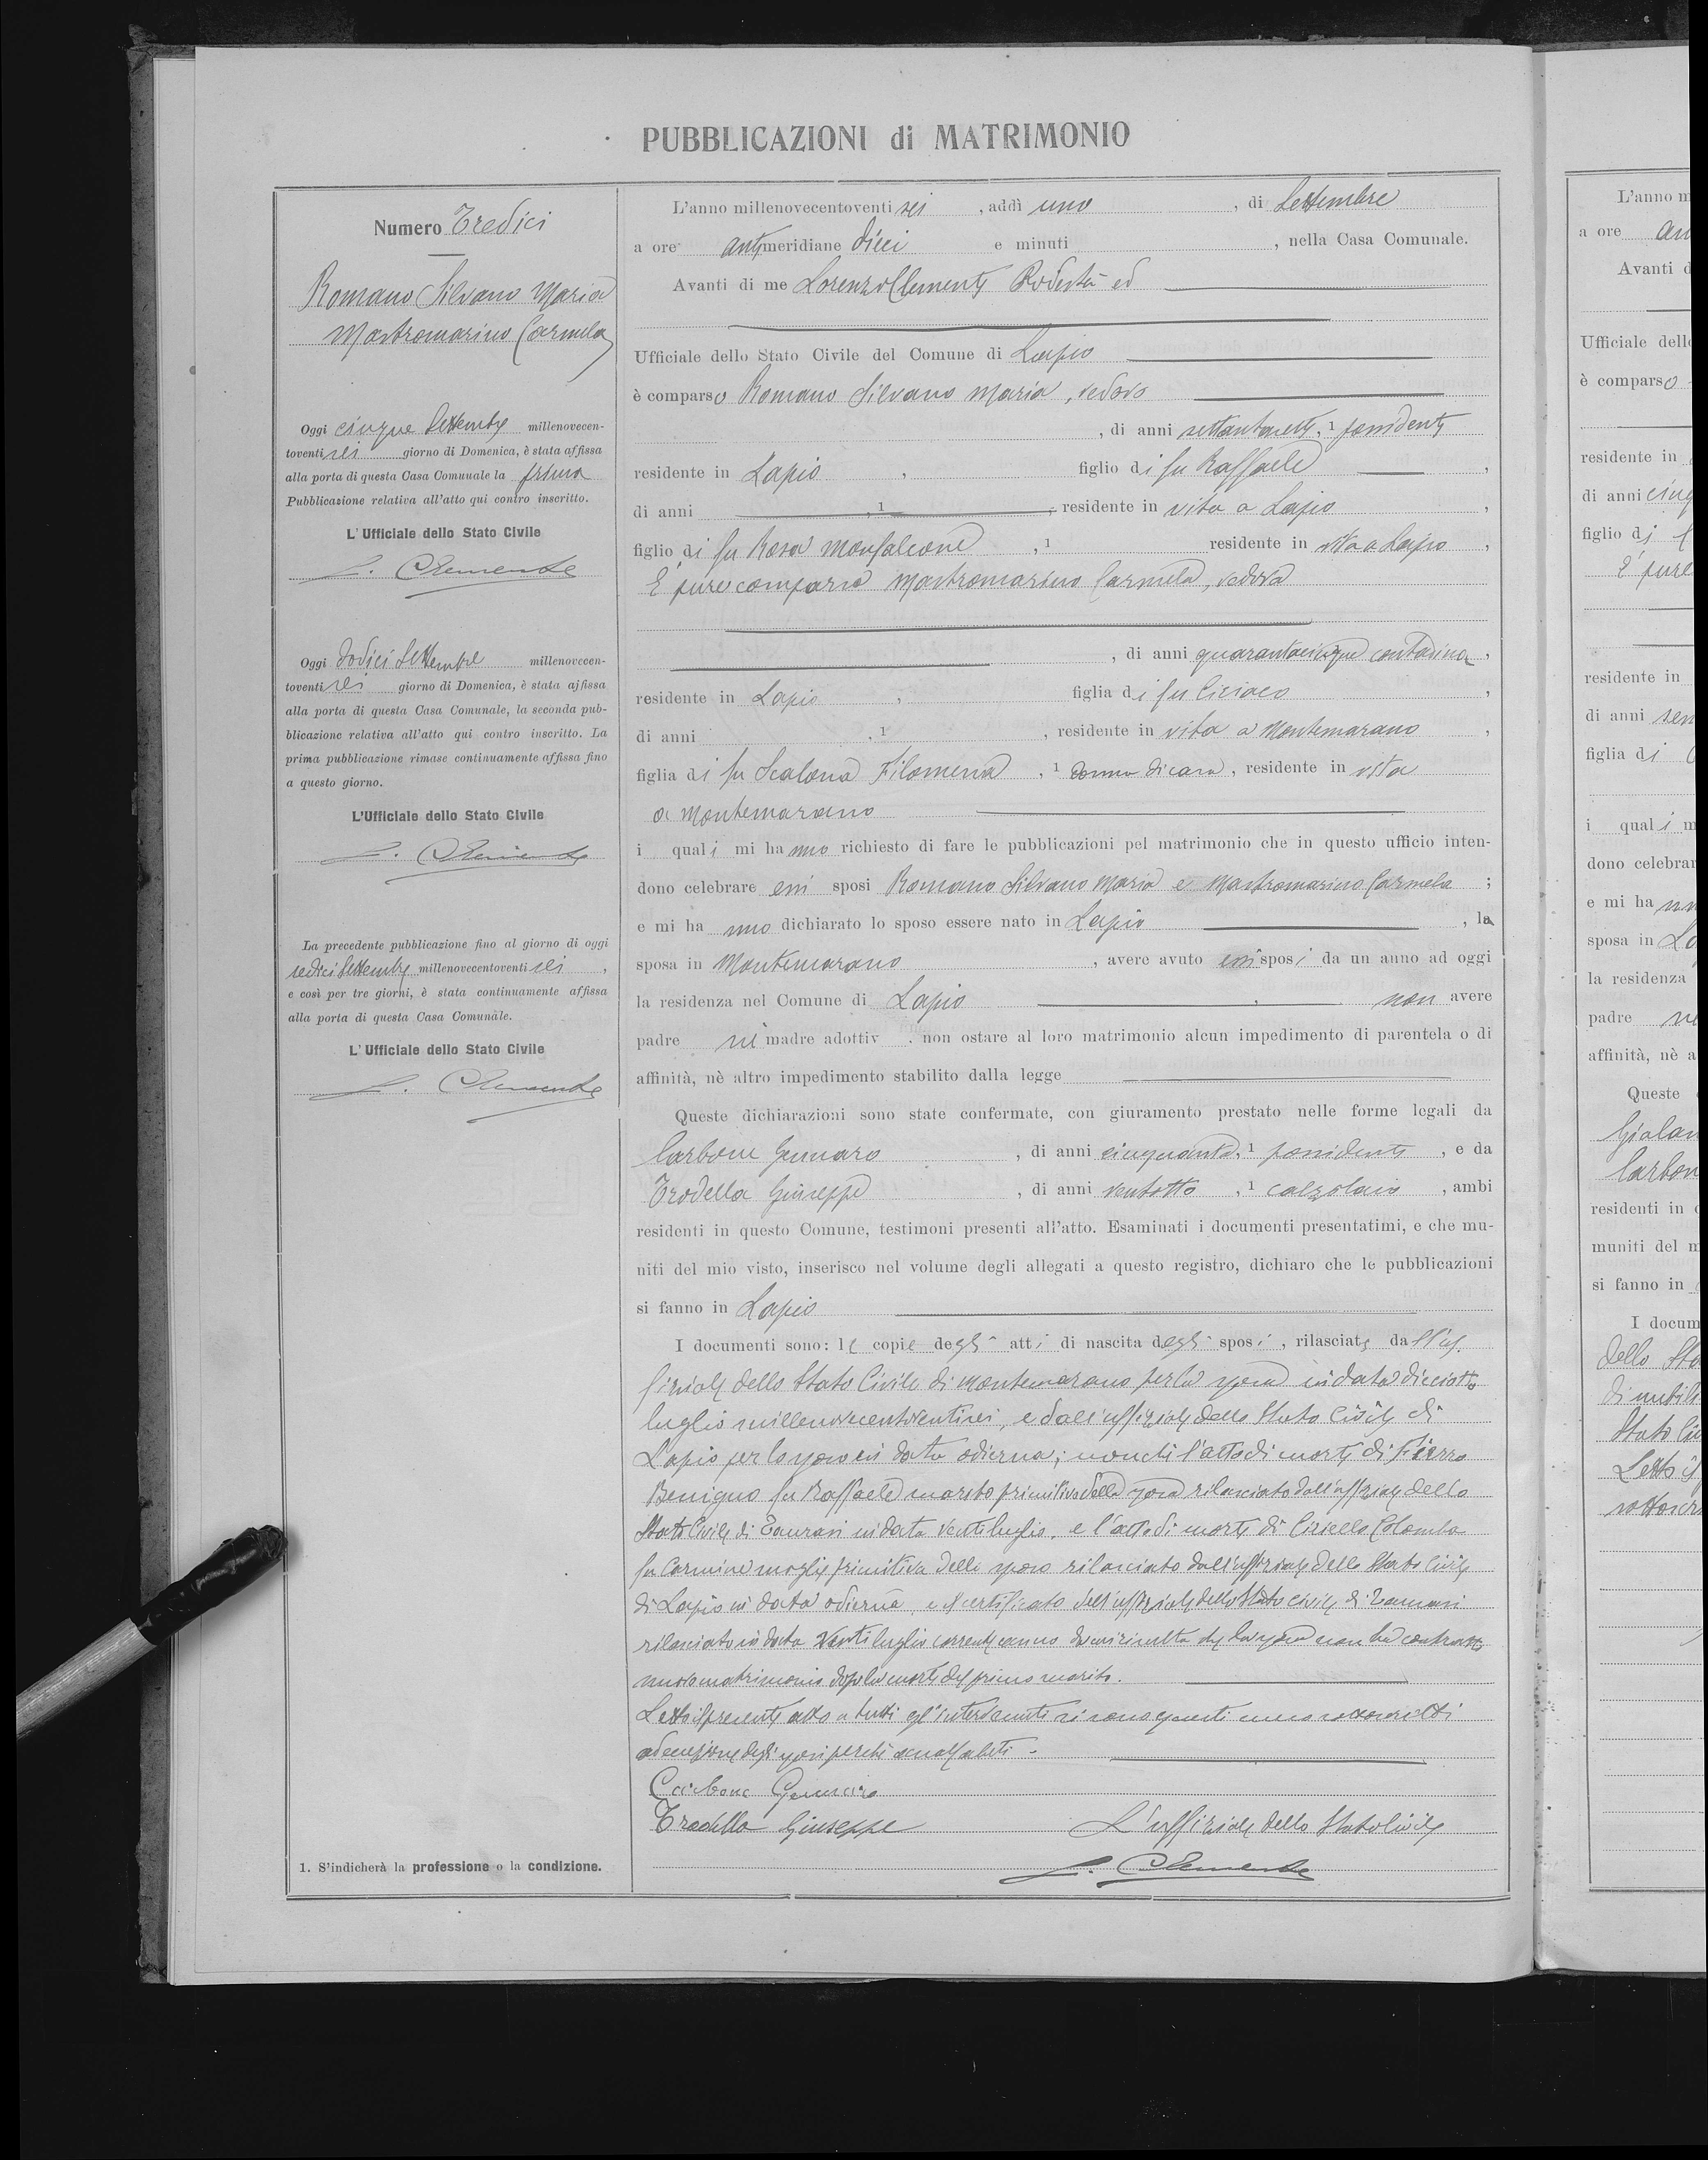 PUBBLICAZIONI di MATRIMONIO
Numero Tredici
Romano Silvano Maria
Mastromarino Carmela
Oggi cinque Settembre millenovecen-
toventi sei giorno di Domenica, è stata affissa
alla porta di questa Casa Comunale la prima
Pubblicazione relativa all'atto qui contro inscritto.
L'Ufficiale dello Stato Civile
L. Clemente
Oggi dodici Settembre millenovecen-
toventi sei giorno di Domenica, è stata affissa
alla porta di questa Casa Comunale, la seconda pub-
blicazione relativa all'atto qui contro inscritto. La
prima pubblicazione rimase continuamente affissa fino
a questo giorno.
L'Ufficiale dello Stato Civile
L. Clemente
La precedente pubblicazione fino al giorno di oggi
sedici Settembre millenovecentoventi sei,
e così per tre giorni, è stata continuamente affissa
alla porta di questa Casa Comunale.
L'Ufficiale dello Stato Civile
L. Clemente
1. S'indicherà la professione o la condizione.
L'anno millenovecentoventi sei, addì uno, di Settembre
a ore antimeridiane dieci e minuti, nella Casa Comunale.
Avanti di me Lorenzo Clemente Podestà ed
Ufficiale dello Stato Civile del Comune di Lapio
è comparso Romano Silvano Maria, vedovo
, di anni settantasette, 1 possidente
residente in Lapio, figlio di fu Raffaele,
di anni , 1 , residente in vita a Lapio,
figlio di fu Rosa Monfalcone, 1 residente in vita a Lapio,
È pure comparsa Mastromarino Carmela, vedova
, di anni quarantacinque contadina,
residente in Lapio, figlia di fu Ciriaco,
di anni , 1 , residente in vita a Montemarano,
figlia di fu Scalona Filomena, 1 donna di casa, residente in vita
a Montemarano
i quali mi hanno richiesto di fare le pubblicazioni pel matrimonio che in questo ufficio inten-
dono celebrare essi sposi Romano Silvano Maria e Mastromarino Carmela;
e mi hanno dichiarato lo sposo essere nato in Lapio, la
sposa in Montemarano, avere avuto essi sposi da un anno ad oggi
la residenza nel Comune di Lapio, non avere
padre nè madre adottiv , non ostare al loro matrimonio alcun impedimento di parentela o di
affinità, nè altro impedimento stabilito dalla legge
Queste dichiarazioni sono state confermate, con giuramento prestato nelle forme legali da
Carbone Gennaro, di anni cinquanta, 1 possidente, e da
Trodella Giuseppe, di anni ventotto, 1 calzolaio, ambi
residenti in questo Comune, testimoni presenti all'atto. Esaminati i documenti presentatimi, e che mu-
niti del mio visto, inserisco nel volume degli allegati a questo registro, dichiaro che le pubblicazioni
si fanno in Lapio
I documenti sono: le copie degli atti di nascita degli sposi, rilasciate dall'uf-
fiziale dello Stato Civile di Montemarano per la sposa in data diciotto
luglio millenovecentoventisei, e dall'uffiziale dello Stato Civile di
Lapio per lo sposo in data odierna; nonchè l'atto di morte di Fierro
Benigno fu Raffaele marito primitivo della sposa rilasciato dall'uffiziale dello
Stato Civile di Taurasi in data venti luglio, e l'atto di morte di Ciriello Colomba
fu Carmine moglie primitiva dello sposo rilasciato dall'uffiziale dello Stato Civile
di Lapio in data odierna, e il certificato dell'uffiziale dello Stato civile di Taurasi
rilasciato in data venti luglio corrente anno da cui risulta che la sposa non ha contratto
nuovo matrimonio dopo la morte del primo marito.
Letto il presente atto a tutti gl'intervenuti si sono questi meco sottoscritti
ad eccezione degli sposi perchè analfabeti.
Carbone Gennaro
Trodella Giuseppe L'uffiziale dello Stato Civile
L. Clemente
L'anno m
a ore an
Avanti d
Ufficiale dell
è comparso
residente in
di anni cinq
figlio di f
È pure
residente in
di anni sen
figlia di
i quali m
dono celebrar
e mi ha nn
sposa in La
la residenza
padre ne
affinità, nè a
Queste
Carbon
residenti in
muniti del m
si fanno in
I docum
dello Sta
di nubil
Stato Civ
Letto il
sottoscr